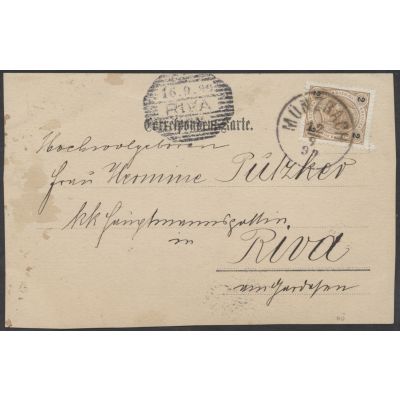 16.9.99
RIVA
Correspondenz-Karte.
MÜNZBACH
2
2
Hochwolgeboren
Frau Hermine Pützker
kk Hauptmannsgattin
in
Riva
am Gardasee